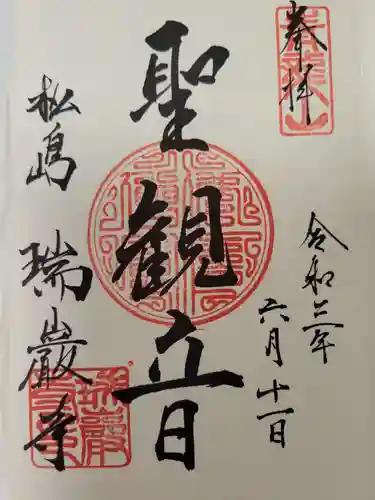 奉拝
令和三年
六月十一日
聖観音
松島
瑞巌寺